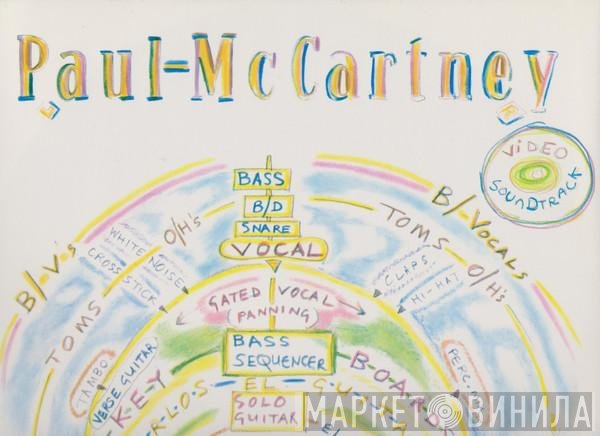 Paul=McCartney
L
R
VIDEO
SOUNDTRACK
BASS
B/D
SNARE
VOCAL
B/-V's
O/H's
TOMS
WHITE NOISE
CROSS STICK
B/-VOCALS
TOMS
O/H's
CLAPS
HI-HAT
GATED VOCAL
PANNING
BASS
SEQUENCER
TAMBO
VERSE GUITAR
PERC.
KEY
BOARDS
EL
SOLO
GUITAR
МАРКЕТ ВИНИЛА